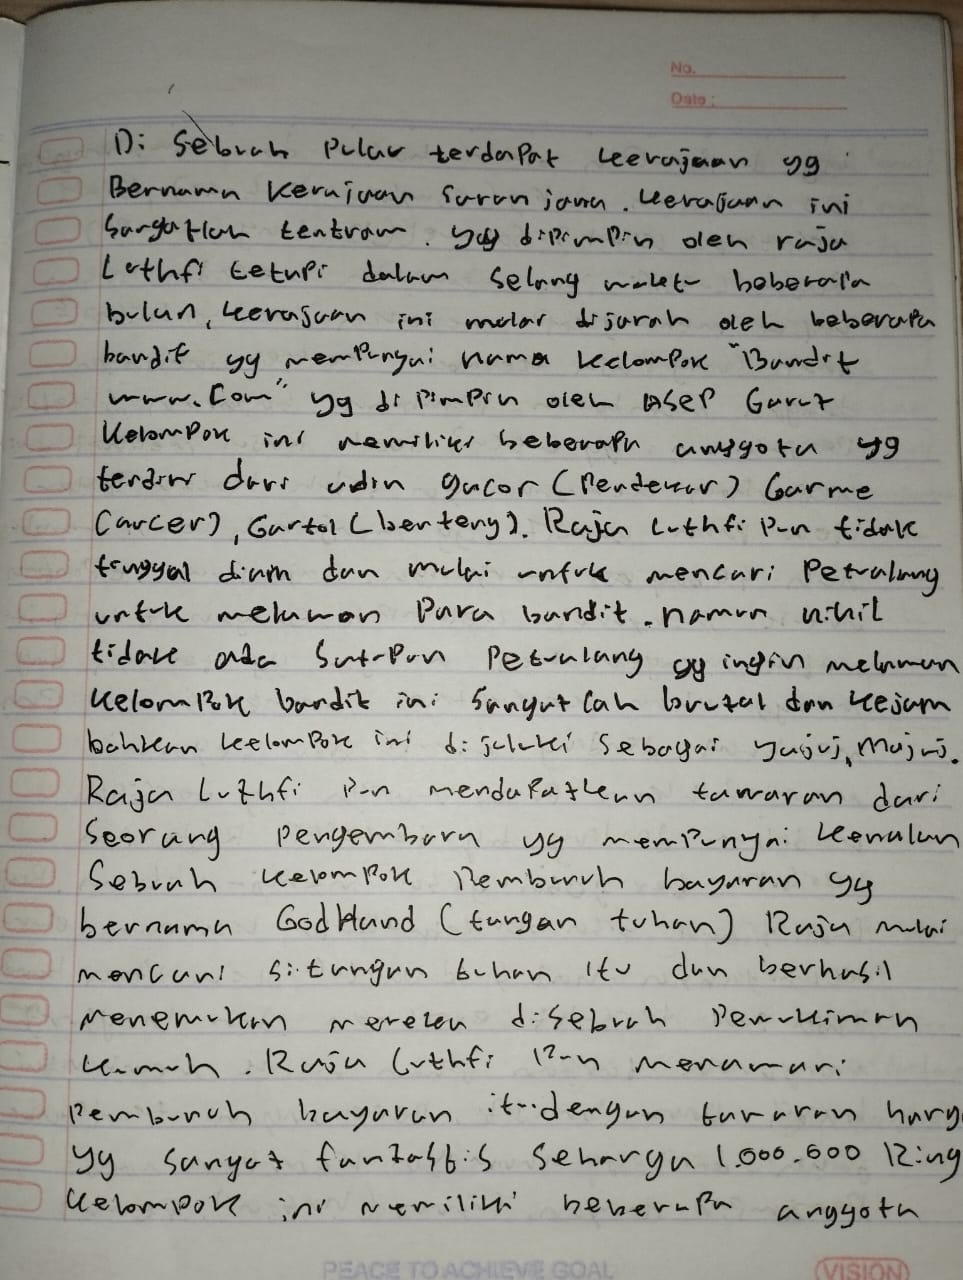 No.
Date :
Di Sebuah Pulau terdapat kerajaan yg
Bernama Kerajaan Saranjana. Kerajaan ini
Sangatlah tentram. yg dipimpin oleh raja
Luthfi tetapi dalam selang waktu beberapa
bulan, kerajaan ini mulai dijarah oleh beberapa
bandit yg mempunyai nama kelompok "Bandit
www.Com" yg di pimpin oleh Asep Garut
Kelompok ini memiliki beberapa anggota yg
terdiri dari udin gacor (Pendekar) Garme
(archer), Gartol (benteng). Raja Luthfi pun tidak
tinggal diam dan mulai untuk mencari Petualang
untuk melawan Para bandit. namun nihil
tidak ada SatuPun Petualang yg ingin melawan
Kelompok bandit ini Sangatlah brutal dan kejam
bahkan kelompok ini di juluki Sebagai yajuj, Majuj.
Raja Luthfi Pun mendapatkan tawaran dari
Seorang Pengembara yg mempunyai kenalan
Sebuah kelompok Pembunuh bayaran yg
bernama GodHand (tangan tuhan) Raja mulai
mencari si tangan tuhan itu dan berhasil
Menemukan mereka disebuah Pemukiman
kumuh. Raja Luthfi Pun menawari
Pembunuh bayaran itu dengan tawaran harg
yg sangat fantastis seharga 1.000.000 Ring
Kelompok ini memiliki beberapa anggota
PEACE TO ACHIEVE GOAL
VISION